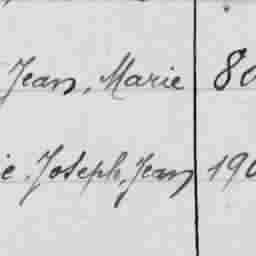 Jean, Marie 80
ie. Joseph, Jean 190